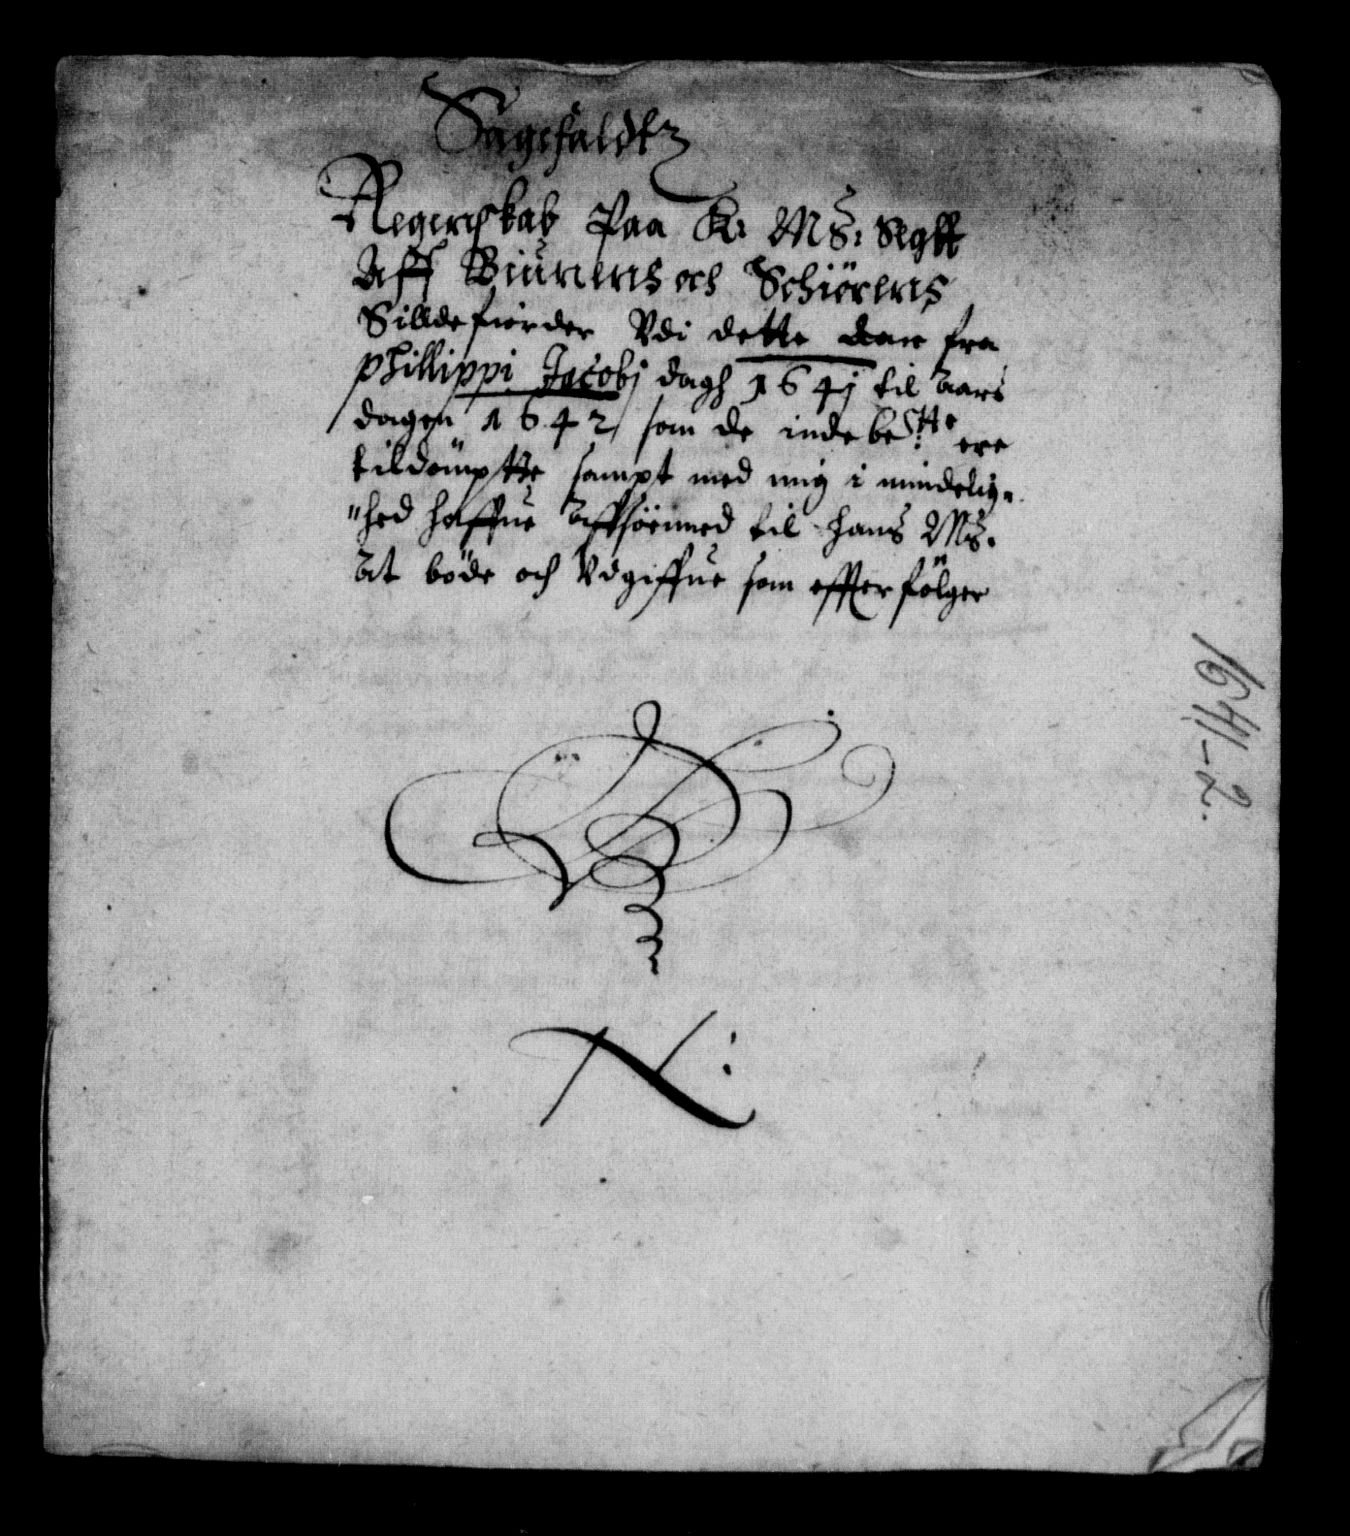 Sagefaldtz
Regenskab Paa K: MS:
Aff Biurnens och Schiörens
Silldefiorder Vdi dette Aar fra
Phillippi Jacobj dagh 1641 til Aars
dagen 1642 som de indebemte ere
tildömptte sampt med mig i mindelig=
"hed haffue Affsöenned til Hans MS.
At böde och Vdgiffue som effterfölger
N:
1641-2.